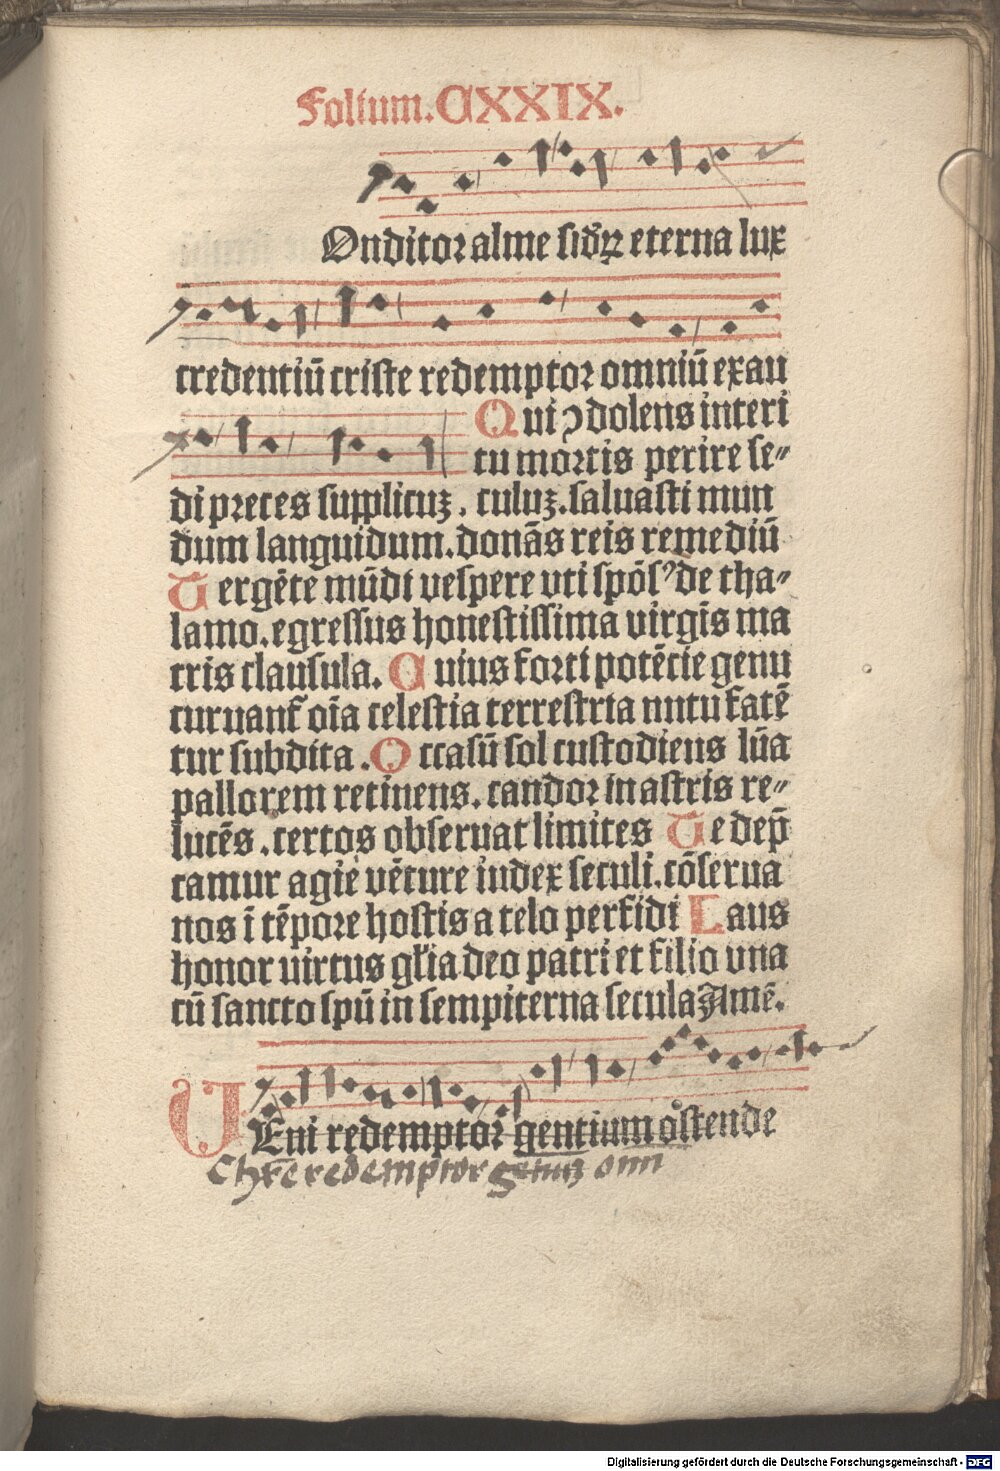 Folium. CXXIX.
Onditor alme sideꝝ eterna lux
credentiū criste redemptor omniū exau
Qui ꝯdolens interi
tu mortis perire se⸗
di preces supplicuꝫ. culuꝫ. saluasti mun
dum languidum. donās reis remediū
Uergēte mūdi vespere vti spōsꝰ de tha⸗
lamo. egressus honestissima virgīs ma
tris clausula. Cuius forti potētie genu
curuant᷑ oīa celestia terrestria nutu fatē
tur subdita. Occasū sol custodiens lūa
pallorem retinens. candor in astris re⸗
lucēs. certos obseruat limites Te dep̄
camur agie vēture iudex seculi. cōserua
nos ī tēpore hostis a telo perfidi Laus
honor uirtus gl̄ia deo patri et filio vna
cū sancto spū in sempiterna secula Amē.
UEni redemptor gentium ostende
Chr̄e redemptor gentiuꝫ omn
Digitalisierung gefördert durch die Deutsche Forschungsgemeinschaft - DFG